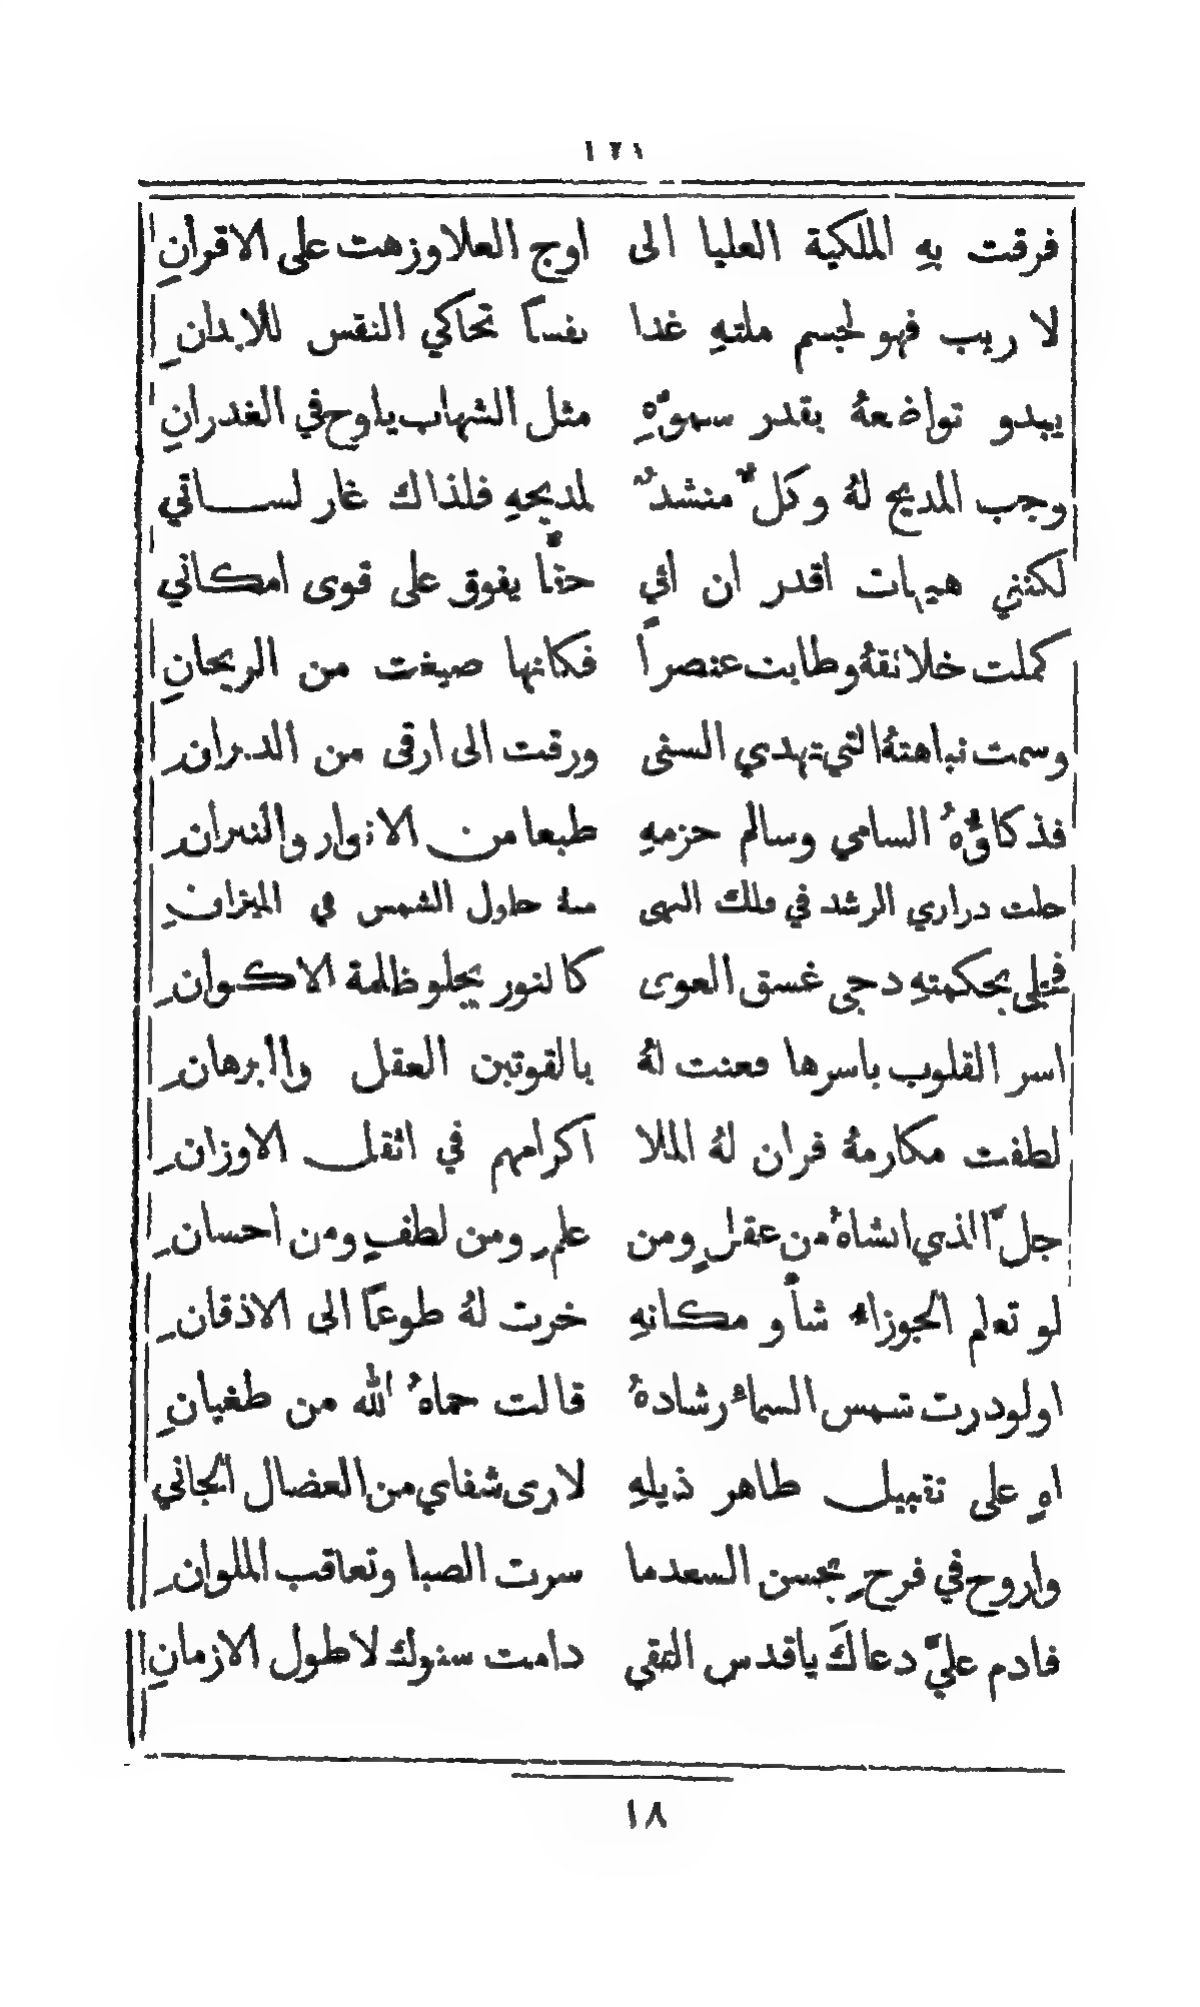 ١٢١
فرقت بهِ الملكية العليا الى اوج العلا وزهت على الاقرانِ
لا ريب فهو لجسم ملتهِ غدا نفساً تحاكي النفس للابدانِ
يبدو تواضعهُ بقدر سموّهِ مثل الشهاب يلوح في الغدرانِ
وجب المديح لهُ وكلٌ منشدٌ لمديحهِ فلذاك غار لساني
لكنني هيهات اقدر ان اثي حقاً يفوق على قوى امكاني
كملت خلائقهُ وطابت عنصراً فكانها صيغت من الريحانِ
وسمت نباهتهُ التي تهدي السنى ورقت الى ارقى من الدبرانِ
فذكاؤُهُ السامي وسالم حزمهِ طبعا من الانوار والنيرانِ
حلت دراري الرشد في فلك النهى منهُ حلول الشمس في الميزانِ
فجلى بحكمتهِ دجى غسق الهوى كالنور يجلو ظلمة الاكوانِ
اسر القلوب باسرها فعنت لهُ بالقوتين العقل والبرهانِ
لطفت مكارمهُ فران لهُ الملا اكرامهم في اثقل الاوزانِ
جلَّ الذي انشاهُ من عقلٍ ومن علمٍ ومن لطفٍ ومن احسانِ
لو تعلم الجوزاء شأو مكانهِ خرت لهُ طوعاً الى الاذقانِ
او لو درت شمس السماءِ رشادهُ قالت حماهُ الله من طغيانِ
اهِ على تقبيل طاهر ذيلهِ لارى شفاي من العضال الجاني
واروح في فرحٍ بحسن السعد ما سرت الصبا وتعاقب الملوانِ
فادم عليَّ دعاكَ يا قدس التقى دامت سنوك لاطول الازمانِ
١٨